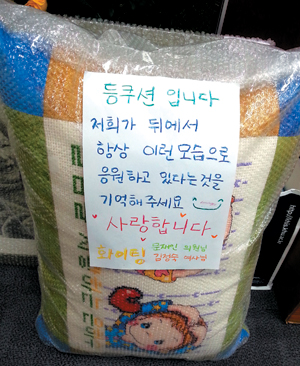 등쿠션 입니다
저희가 뒤에서
항상 이런모습으로
응원하고 있다는것을
기억해주세요
사랑합니다
문재인 의원님
화이팅 김정숙 여사님